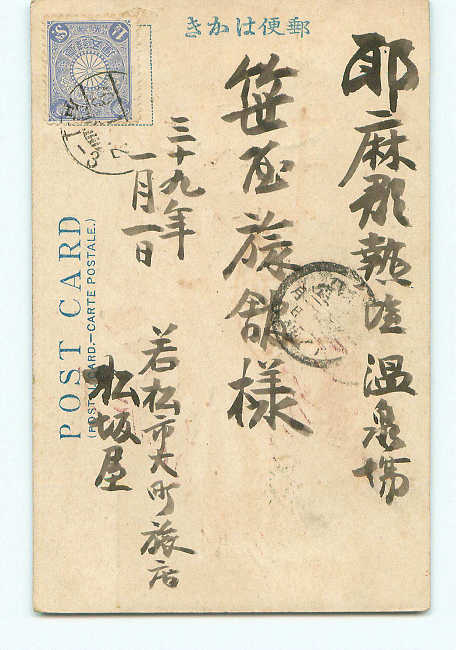 郵便はかき
耶麻郡熱塩温泉場
笹屋旅館様
三十九年
一月一日
若松市大町旅店
松坂屋
POST CARD
(POST CARD.—CARTE POSTALE.)